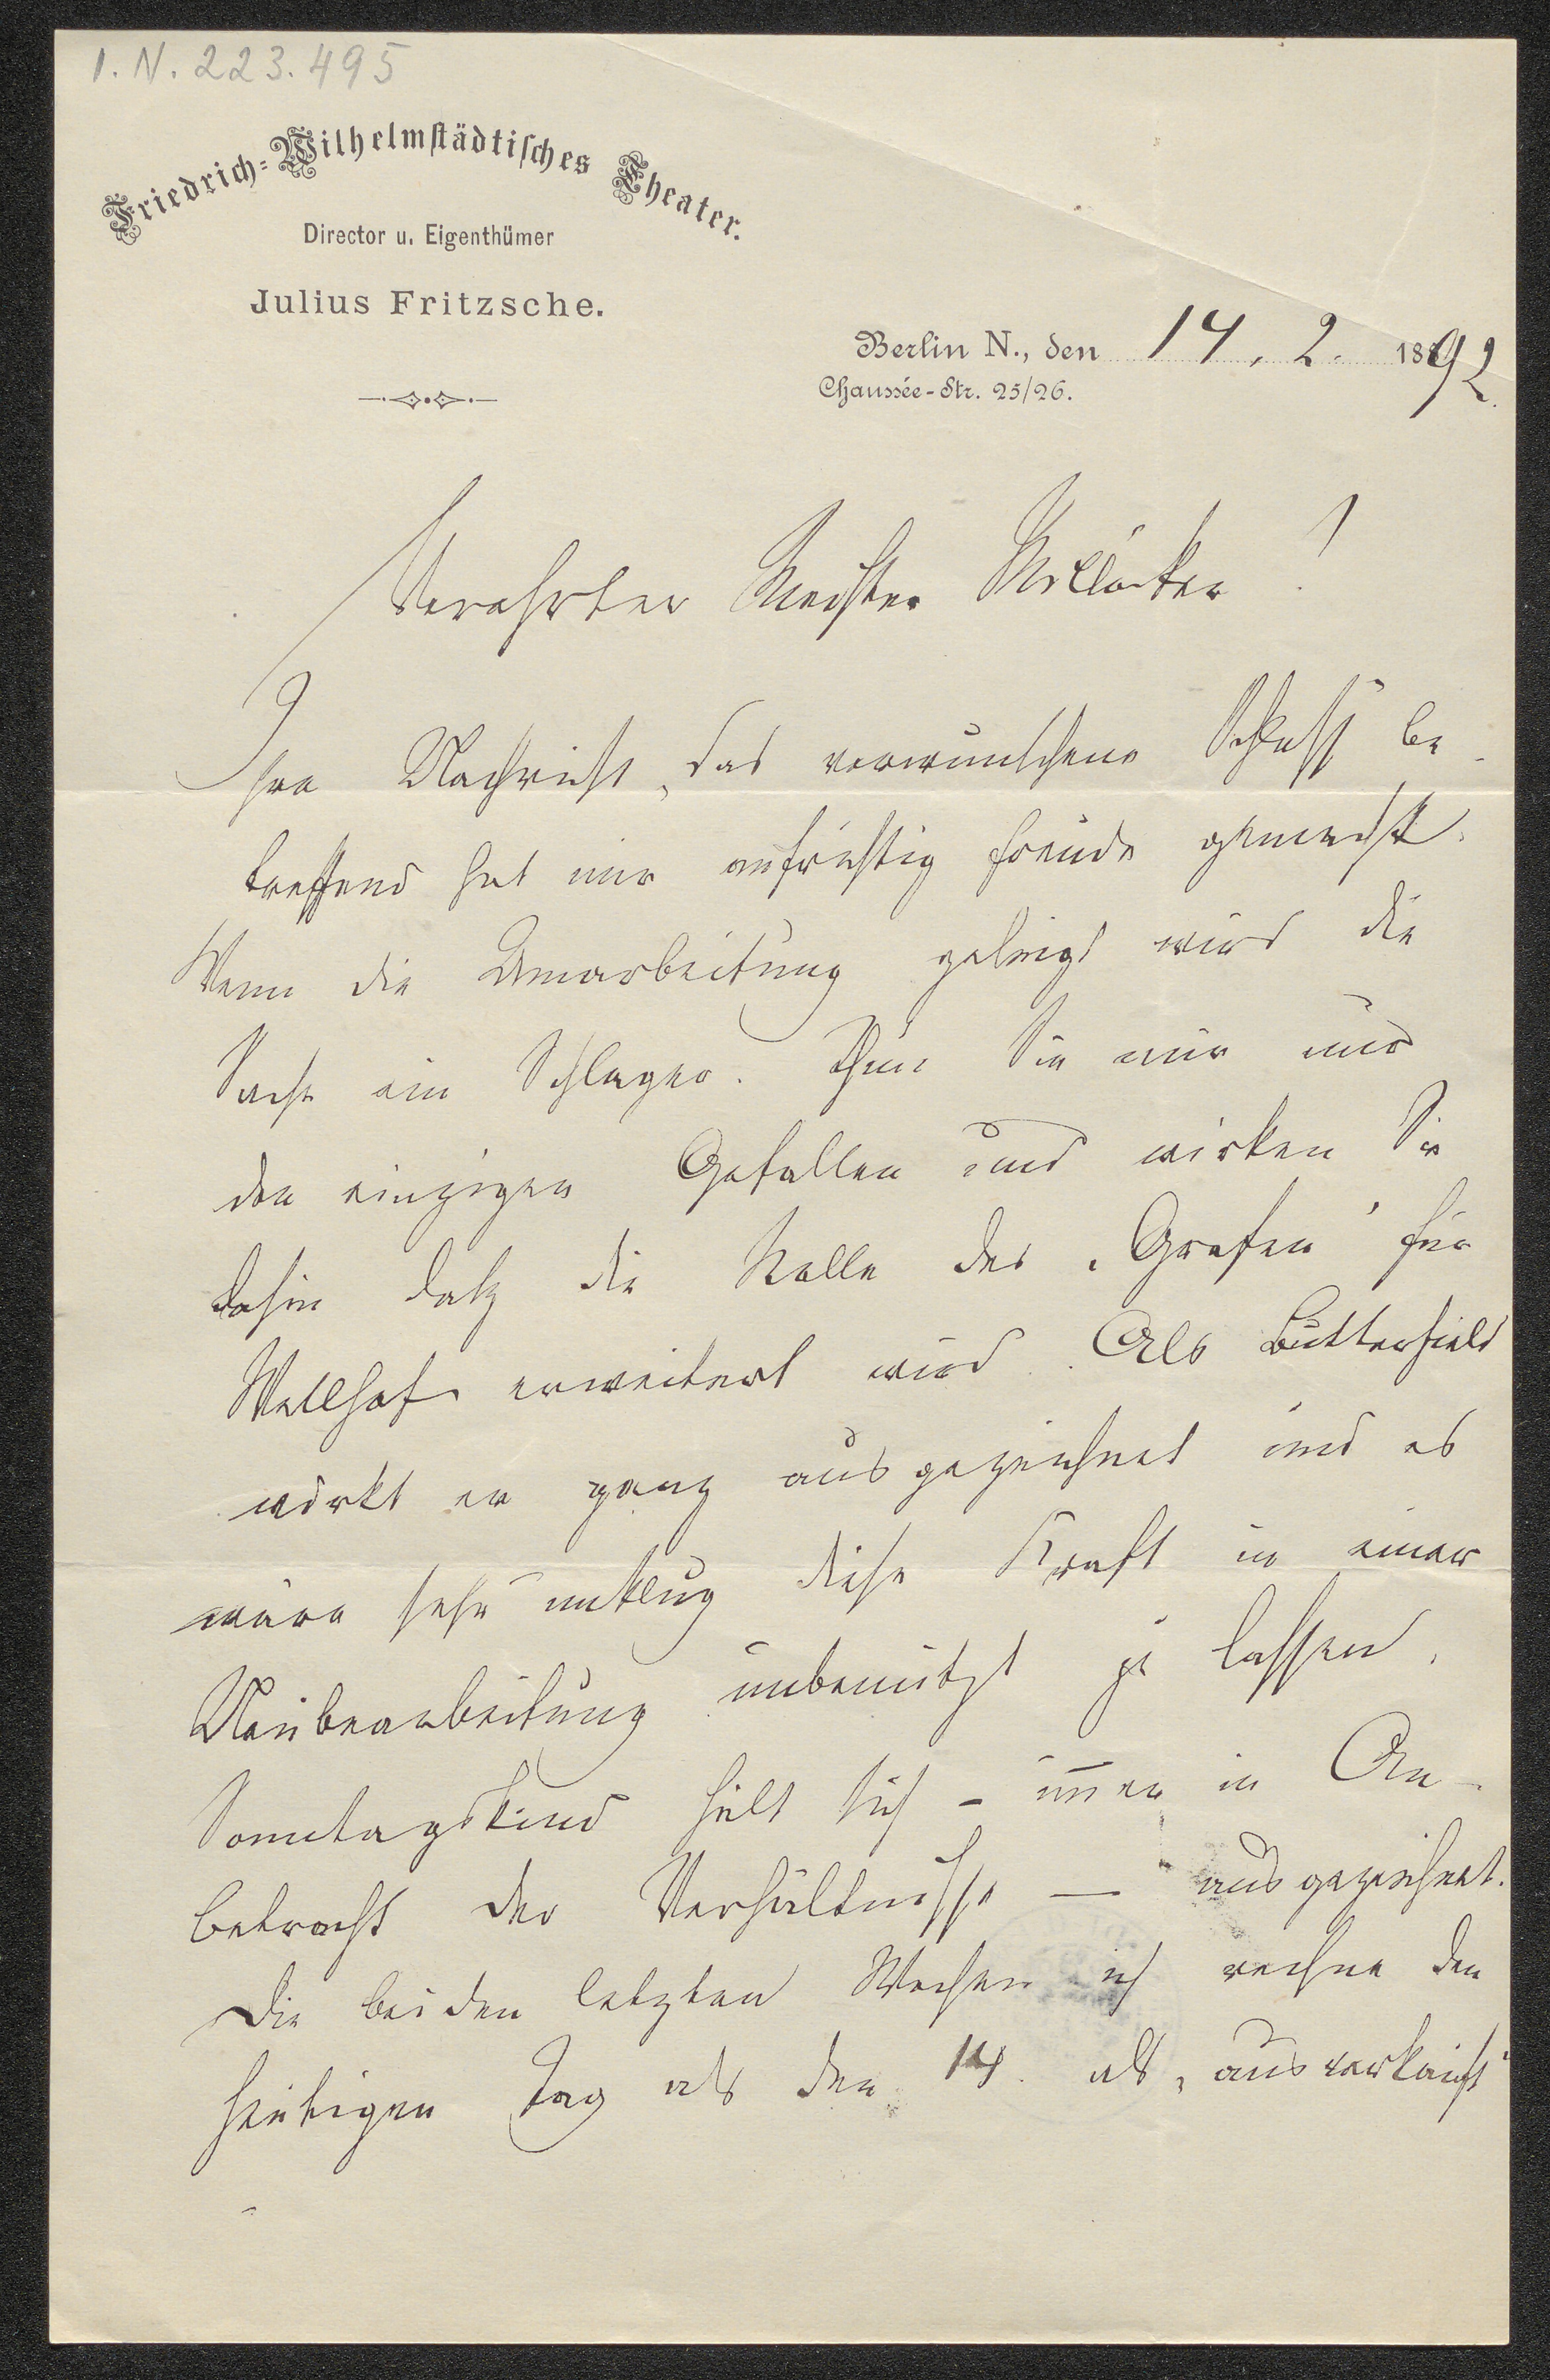 I.N. 223.495
Friedrich-Wilhelmstädtisches Theater.
Director u. Eigenthümer
Julius Fritzsche.
Berlin N., den 14. 2. 1892.
Chaussée-Str. 25/26.
Verehrter Meister Millöcker!
Ihre Nachricht, das verwunschene Schloß be-
treffend hat mir aufrichtig Freude gemacht.
Wenn die Umarbeitung gelingt wird die
Sache ein Schlager. Thun Sie mir nur
den einzigen Gefallen und wirken Sie
dahin daß die Rolle des „Grafen“ für
Wellhof erweitert wird. Als Butterfield
wirkt er ganz ausgezeichnet und es
wäre sehr unklug diese Kraft in einer
Neubearbeitung unbenützt zu lassen.
Sonntagskind hält sich – im̄er in An-
betracht der Verhältnisse — ausgezeichnet.
Die beiden letzten Wochen ich rechne den
heutigen Tag als den 14. als „ausverkauft“